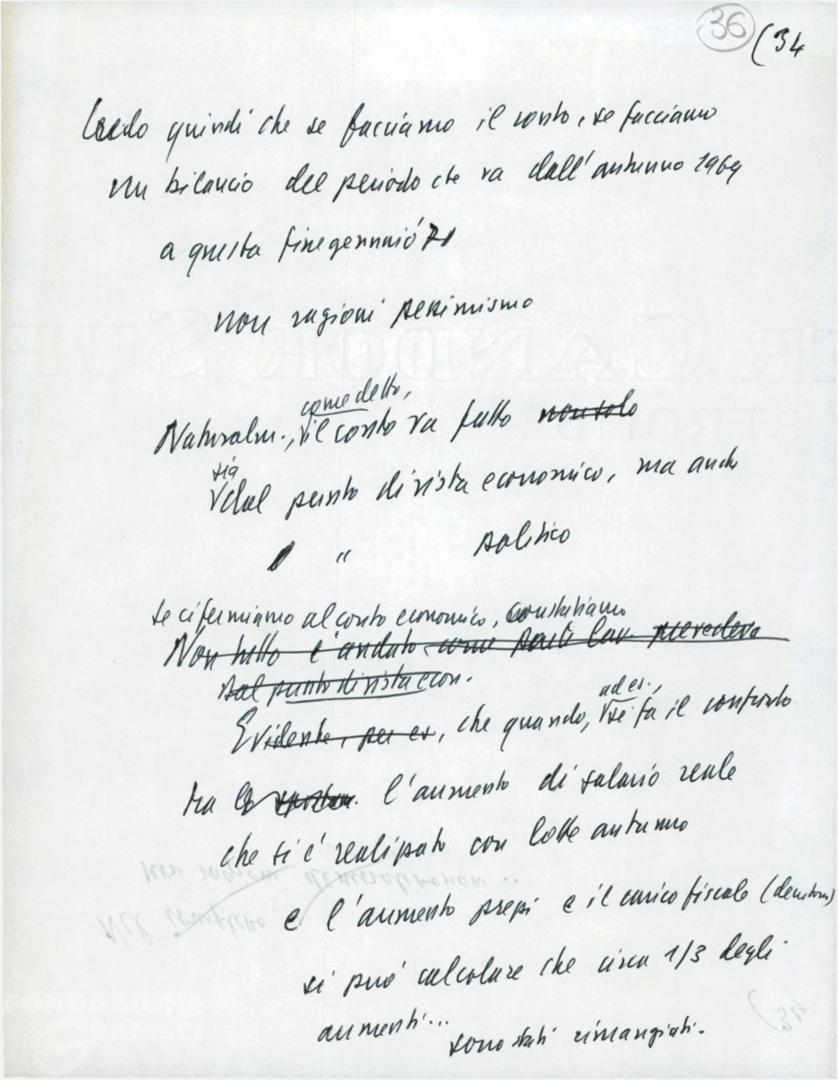 36 (34
Credo quindi che se facciamo il conto, se facciamo
un bilancio del periodo che va dall'autunno 1969
a questa fine gennaio '71
non ragioni pessimismo
come detto,
Naturalm., il conto va fatto non solo
sia
dal punto di vista economico, ma anche
" politico
se ci fermiamo al conto economico, constatiamo
Non tutto è andato come prevedeva
dal punto di vista econ.
ad es.,
Evidente, per es, che quando, se fa il confronto
tra l'aumento di salario reale
che si è realizzato con lotte autunno
e l'aumento prezzi e il carico fiscale
si può calcolare che circa 1/3 degli
aumenti...
sono stati rimangiati.
FONDAZIONE
GRAMSCI